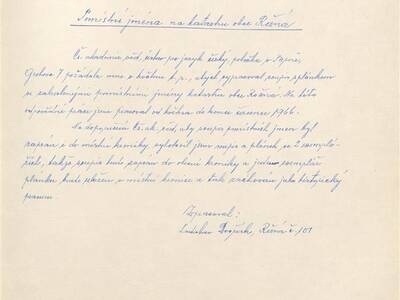 Pomístní jména na katastru obce Řešná
Čs. akademie věd, ústav pro jazyk český, pobočka v
7 požádala mne v květnu t. r., abych vypracoval soupis s plánkem
se zakreslenými pomístními jmény katastru obce Řešná. Na této
práci jsem pracoval od května do konce července 1966.
Na doporučení Čs. ak. věd, aby soupis pomístních jmen byl
zapsán i do místní kroniky, vyhotovil jsem soupis a plánek ve 2 exemplá-
řích, takže soupis bude zapsán do obecní kroniky a jeden exemplář
plánku bude uložen v místní kronice a tak zachován jako historický
pramen.
Vypracoval:
Ladislav Dvořáček, Řešná č. 101